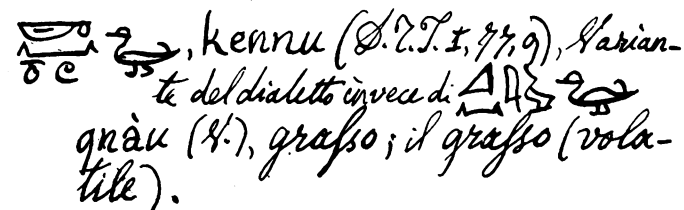 , kennu (S.T.T. I, 77, 9), Varian-
te del dialetto invece di
qnàu (V.), grasso; il grasso (vola-
tile).